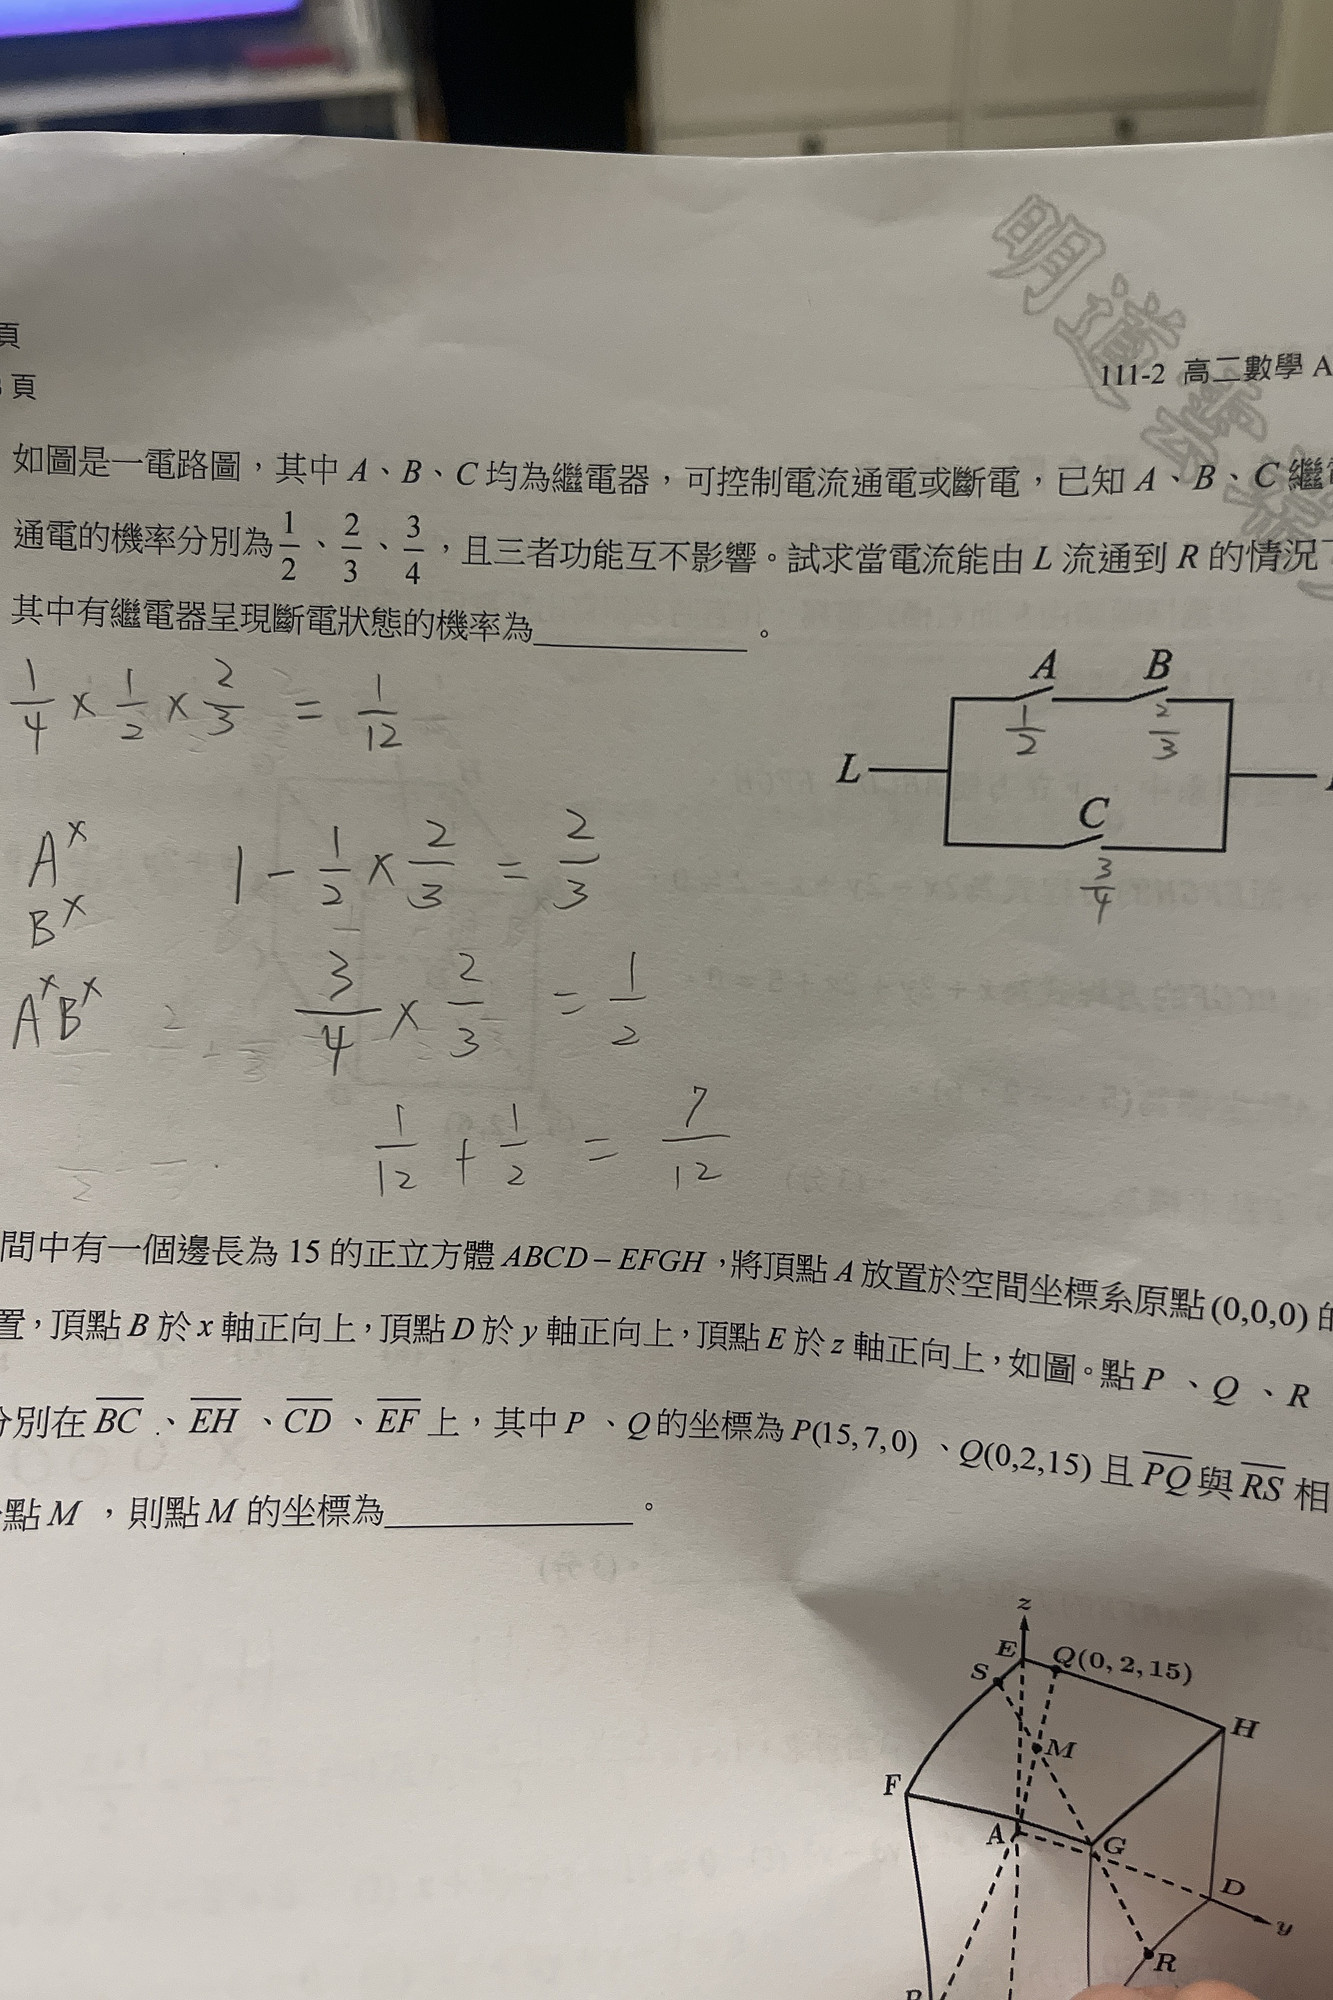 明道
頁
頁
111-2 高二數學 A
如圖是一電路圖，其中 A、B、C 均為繼電器，可控制電流通電或斷電，已知 A、B、C 繼電
通電的機率分別為 1/2、2/3、3/4，且三者功能互不影響。試求當電流能由 L 流通到 R 的情況下
其中有繼電器呈現斷電狀態的機率為＿＿＿＿＿＿。
A B
1/2 2/3
L
C
3/4
1/4 × 1/2 × 2/3 = 1/12
A^×
B^×
A^×B^×
1 - 1/2 × 2/3 = 2/3
3/4 × 2/3 = 1/2
1/12 + 1/2 = 7/12
間中有一個邊長為 15 的正立方體 ABCD－EFGH，將頂點 A 放置於空間坐標系原點 (0,0,0) 的
置，頂點 B 於 x 軸正向上，頂點 D 於 y 軸正向上，頂點 E 於 z 軸正向上，如圖。點 P 、Q 、R
分別在 B̅C̅ 、E̅H̅ 、C̅D̅ 、E̅F̅ 上，其中 P 、Q 的坐標為 P(15,7,0) 、Q(0,2,15) 且 P̅Q̅ 與 R̅S̅ 相
點 M ，則點 M 的坐標為＿＿＿＿＿＿。
z
E Q(0, 2, 15)
S
H
M
F
A G
D
y
R